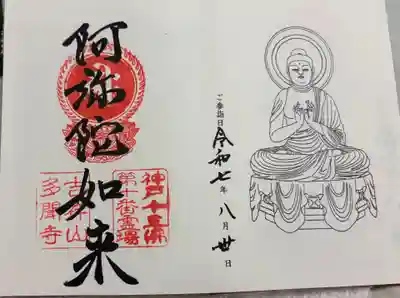 阿弥陀如来
神戸十三佛
第十番霊場
多聞寺
ご参拝日 令和七年 八月 卅日